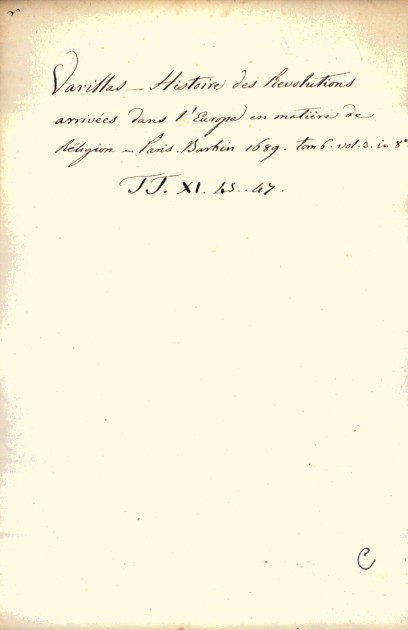 Varillas — Histoire des Revolutions
arrivées dans l'Europe en matière de
Réligion — Paris. Barbin 1689. tom 6. vol. 3. in 8°
TT. XI. 45..47.
C